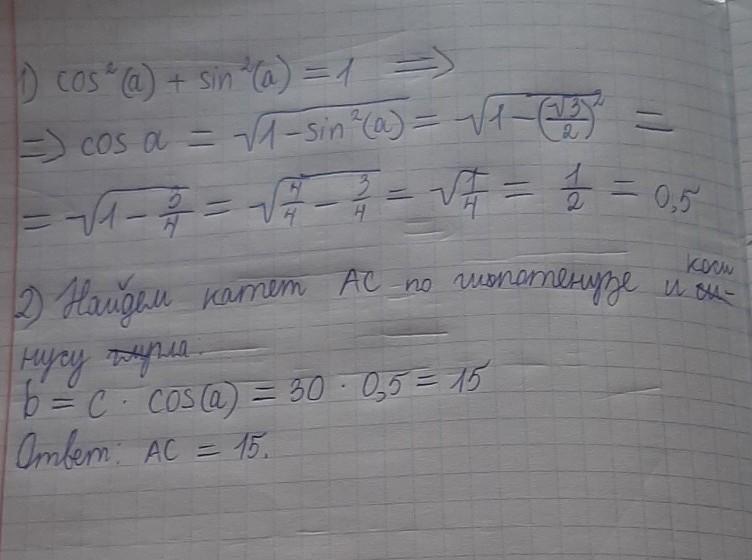 1) cos²(a) + sin²(a) = 1 =>
=> cos a = √(1 - sin²(a)) = √(1 - (√3/2)²) =
= √(1 - 3/4) = √(4/4 - 3/4) = √(1/4) = 1/2 = 0,5
2) Найдем катет AC по гипотенузе и коси
нусу угла:
b = c · cos(a) = 30 · 0,5 = 15
Ответ: AC = 15.